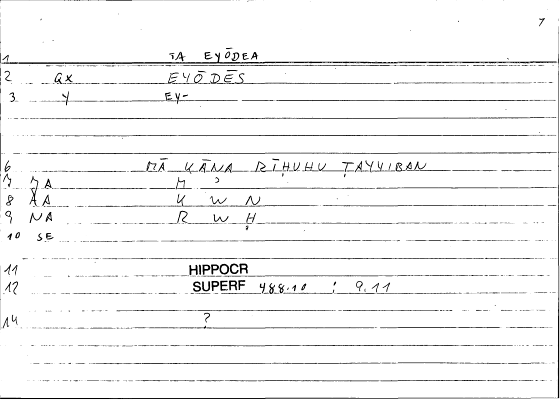 7
1 TA EYŌDEA
2 QX EYŌDĒS
3 Y EY-
6 MĀ KĀNA RĪḤUHU ṬAYYIBAN
7 MA M ʾ
8 AA K W N
9 NA R W Ḥ
10 SE
11 HIPPOCR
12 SUPERF 488.10 : 9.11
14 ?